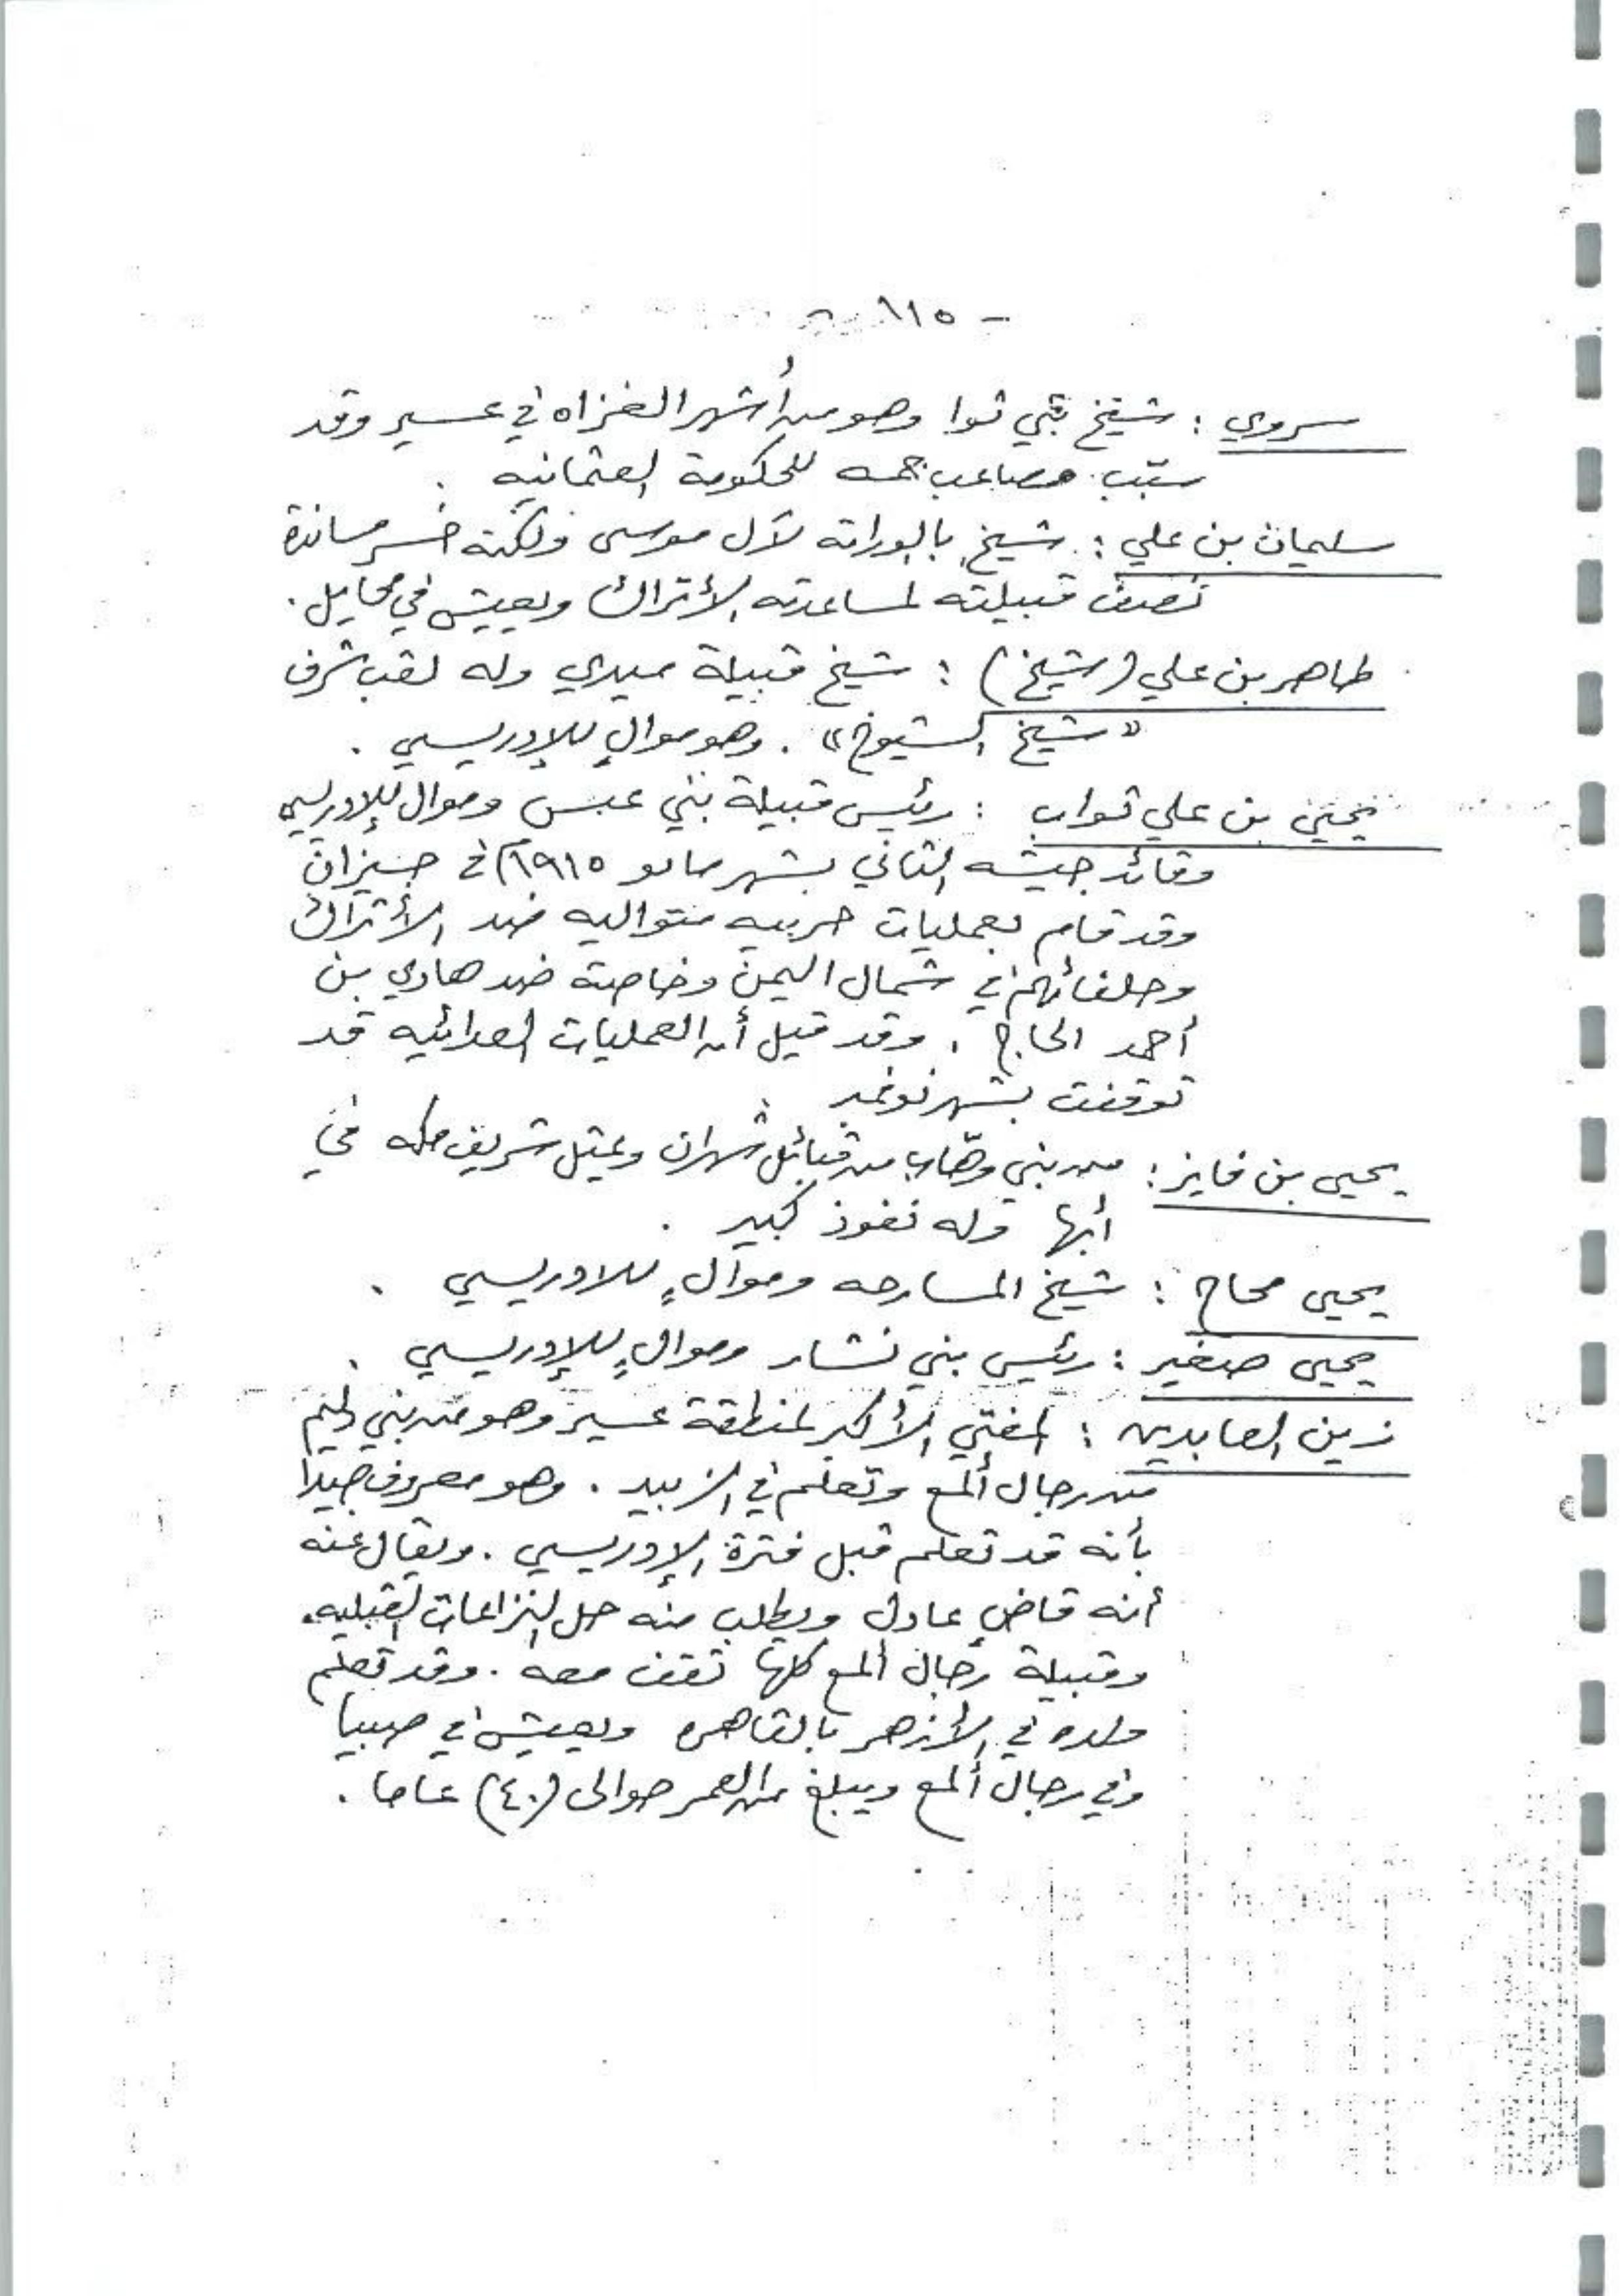 - ١١٥ -
سروي : شيخ بني ثوا وهو من أشهر الغزاه في عسير وقد
سبّب مصاعب جمه للحكومة العثمانيه .
سليمان بن علي : شيخ بالوراثه لآل موسى ولكنه خسر مساندة
نصف قبيلته لمساعدته الأتراك ويعيش في محايل .
طاهر بن علي (شيخ) : شيخ قبيلة ميدي وله لقب شرف
« شيخ الشيوخ » . وهو موالٍ للإدريسي .
يحيى بن علي ثواب : رئيس قبيلة بني عبس وموال للإدريسي
وقائد جيشه الثاني بشهر مايو ١٩١٥م في جيزان
وقد قام بعمليات حربيه متواليه ضد الأتراك
وحلفائهم في شمال اليمن وخاصة ضد هادي بن
أحمد الحاج . وقد قيل أن العمليات العدائيه قد
توقفت بشهر نوفمبر .
يحيى بن فايز : من بني وهّاب من قبائل شهران ويمثل شريف مكه في
أبها وله نفوذ كبير .
يحيى محاج : شيخ المسارحه وموالٍ للادريسي .
يحيى صغير : رئيس بني نشار وموالٍ للإدريسي .
زين العابدين : المفتي الأكبر لمنطقة عسير وهو من بني
من رجال ألمع وتعلم في الزبيد . وهو معروف جيداً
بأنه قد تعلم قبل فترة الإدريسي . ويقال عنه
أنه قاضٍ عادل ويطلب منه حل النزاعات القبليه .
وقبيلة رجال ألمع كلها تقف معه . وقد تعلم
ولده في الأزهر بالقاهره ويعيش في صبيا
وفي رجال ألمع ويبلغ من العمر حوالى (٤٠) عاما .